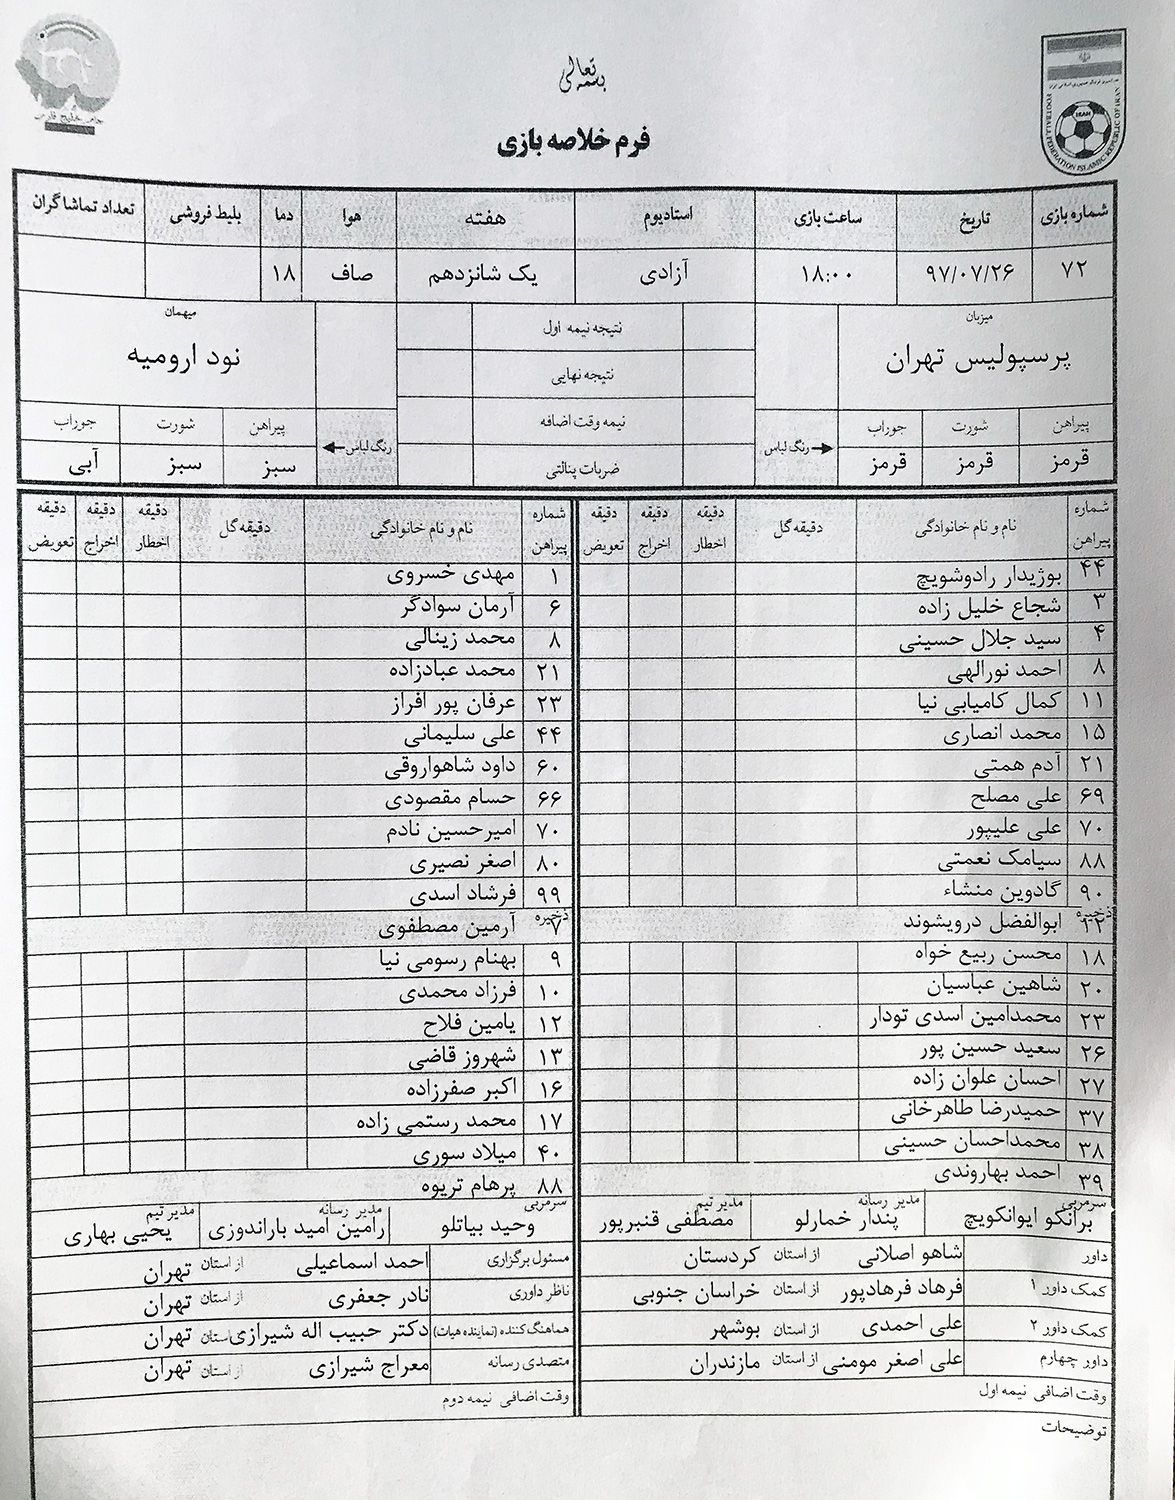 بسمه تعالی
جام خلیج فارس
IRAN
FOOTBALL FEDERATION ISLAMIC REPUBLIC OF IRAN
فرم خلاصه بازی
شماره بازی تاریخ ساعت بازی استادیوم هفته هوا دما بلیط فروشی تعداد تماشاگران
۷۲ ۹۷/۰۷/۲۶ ۱۸:۰۰ آزادی یک شانزدهم صاف ۱۸
میزبان نتیجه نیمه اول میهمان
پرسپولیس تهران نتیجه نهایی نود ارومیه
پیراهن شورت جوراب رنگ لباس نیمه وقت اضافه رنگ لباس پیراهن شورت جوراب
قرمز قرمز قرمز ضربات پنالتی سبز سبز آبی
شماره پیراهن نام و نام خانوادگی دقیقه گل دقیقه اخطار دقیقه اخراج دقیقه تعویض شماره پیراهن نام و نام خانوادگی دقیقه گل دقیقه اخطار دقیقه اخراج دقیقه تعویض
۴۴ بوژیدار رادوشویچ ۱ مهدی خسروی
۳ شجاع خلیل زاده ۶ آرمان سوادگر
۴ سید جلال حسینی ۸ محمد زینالی
۸ احمد نورالهی ۲۱ محمد عبادزاده
۱۱ کمال کامیابی نیا ۲۳ عرفان پور افراز
۱۵ محمد انصاری ۴۴ علی سلیمانی
۲۱ آدم همتی ۶۰ داود شاهواروقی
۶۹ علی مصلح ۶۶ حسام مقصودی
۷۰ علی علیپور ۷۰ امیرحسین نادم
۸۸ سیامک نعمتی ۸۰ اصغر نصیری
۹۰ گادوین منشاء ۹۹ فرشاد اسدی
ذخیره ۱۲ ابوالفضل درویشوند ذخیره ۷ آرمین مصطفوی
۱۸ محسن ربیع خواه ۹ بهنام رسومی نیا
۲۰ شاهین عباسیان ۱۰ فرزاد محمدی
۲۳ محمدامین اسدی تودار ۱۲ یامین فلاح
۲۶ سعید حسین پور ۱۳ شهروز قاضی
۲۷ احسان علوان زاده ۱۶ اکبر صفرزاده
۳۷ حمیدرضا طاهرخانی ۱۷ محمد رستمی زاده
۳۸ محمداحسان حسینی ۴۰ میلاد سوری
۳۹ احمد بهاروندی ۸۸ پرهام تریوه
سرمربی برانکو ایوانکویچ مدیر رسانه پندار خمارلو مدیر تیم مصطفی قنبرپور سرمربی وحید بیاتلو مدیر رسانه رامین امید باراندوزی مدیر تیم یحیی بهاری
داور شاهو اصلانی از استان کردستان مسئول برگزاری احمد اسماعیلی از استان تهران
کمک داور ۱ فرهاد فرهادپور از استان خراسان جنوبی ناظر داوری نادر جعفری از استان تهران
کمک داور ۲ علی احمدی از استان بوشهر هماهنگ کننده (نماینده هیات) دکتر حبیب اله شیرازی از استان تهران
داور چهارم علی اصغر مومنی از استان مازندران متصدی رسانه معراج شیرازی از استان تهران
وقت اضافی نیمه اول وقت اضافی نیمه دوم
توضیحات